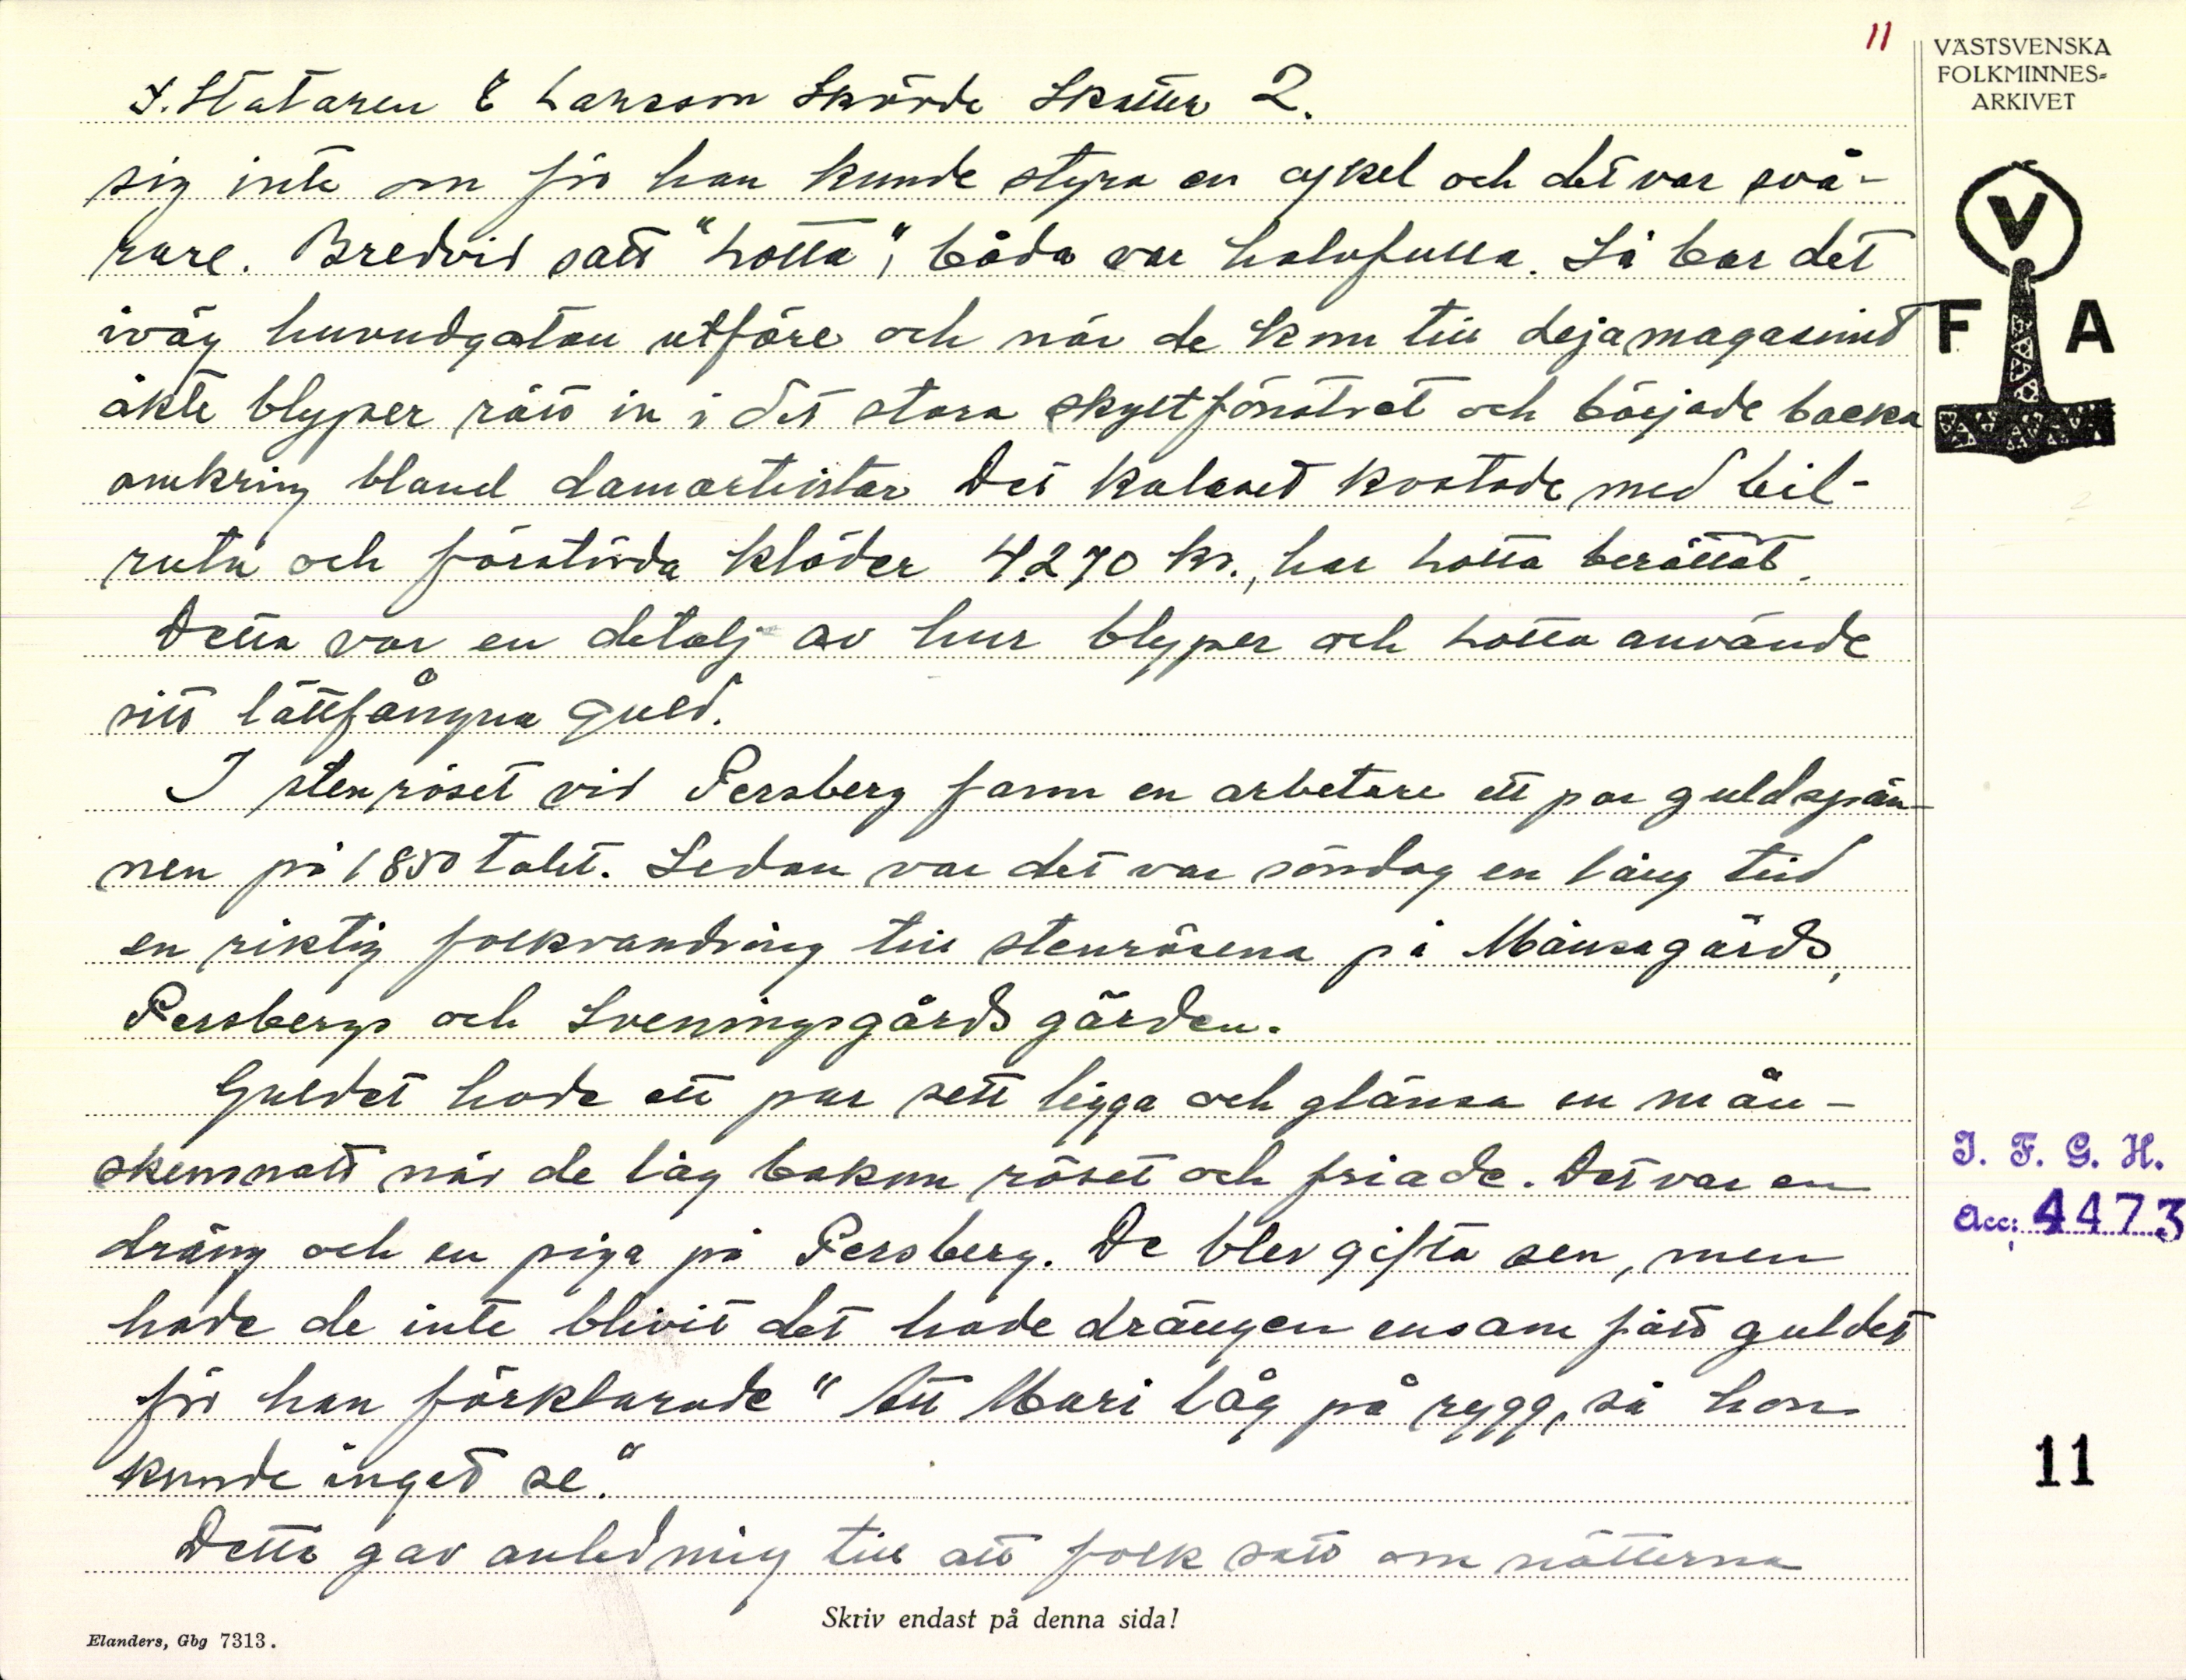 11
VÄSTSVENSKA
FOLKMINNES=
ARKIVET
V
F A
F. Stataren E Larsson Skövde Skatter 2.
sig inte om för han kunde styra en cykel och det var svå-
rare. Bredvid satt "Lotta", båda var halvfulla. Så bar det
iväg huvudgatan utföre och när de kom till Lejamagasinet
åkte blyper rätt in i det stora skyltfönstret och började backa
omkring bland damartistar Det kalaset kostade med bil-
ruta och förstörda kläder 4270 kr., har Lotta berättat.
Detta var en detalj av hur blyper och Lotta använde
sitt lättfångna guld.
I stenröset vid Persberg fann en arbetare ett par guldspän-
nen på 1850 talet. Sedan var det var söndag en lång tid
en riktig folkvandring till stenrösena på Månsagårds,
Persbergs och Sveningsgårds gärden.
Guldet hade ett par sett ligga och glänsa en mån-
skensnatt när de låg bakom röset och friade. Det var en
dräng och en piga på Persberg. De blev gifta sen, men
hade de inte blivit det hade drängen ensam fått guldet
för han förklarade "Att Mari låg på rygg, så hon
kunde inget se."
Detta gav anledning till att folk satt om nätterna
I. F. G. H.
Acc: 4473
11
Skriv endast på denna sida!
Elanders, Gbg 7313.